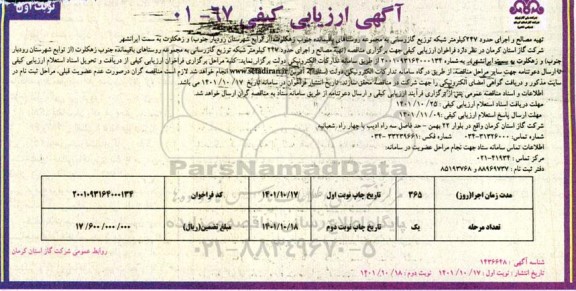 نوبت اول
آگهی ارزیابی کیفی ۶۷-۰۱
تهیه مصالح و اجرای حدود ۲۴۷ کیلومتر شبکه توزیع گازرسانی به مجموعه روستاهای باقیمانده جنوب زهکلوت (از توابع شهرستان رودبار جنوب) و زهکلوت به سمت ایرانشهر
شرکت گاز استان کرمان در نظر دارد فراخوان ارزیابی کیفی جهت برگزاری مناقصه (تهیه مصالح و اجرای حدود ۲۴۷ کیلومتر شبکه توزیع گازرسانی به مجموعه روستاهای باقیمانده جنوب زهکلوت (از توابع شهرستان رودبار
جنوب) و زهکلوت به سمت ایرانشهر به شماره ۲۰۰۱۰۹۳۱۶۴۰۰۰۱۳۴ را از طریق سامانه تدارکات الکترونیکی دولت برگزار نماید. کلیه مراحل برگزاری فراخوان ارزیابی کیفی از دریافت و تحویل اسناد استعلام ارزیابی کیفی
تا ارسال دعوتنامه جهت سایر مراحل مناقصه، از طریق درگاه سامانه تدارکات الکترونیکی دولت (ستاد) به آدرس www.setadiran.ir انجام خواهد شد. لازم است مناقصه گران درصورت عدم عضویت قبلی، مراحل ثبت نام در
سایت مذکور و دریافت گواهی امضای الکترونیکی را جهت شرکت در مناقصه محقق سازند. تاریخ انتشار فراخوان در سامانه تاریخ ۱۴۰۱/۱۰/۱۷ می باشد.
اطلاعات و اسناد مناقصه عمومی پس از برگزاری فرآیند ارزیابی کیفی و ارسال دعوتنامه از طریق سامانه ستاد به مناقصه گران ارسال خواهد شد.
مهلت دریافت اسناد استعلام ارزیابی کیفی : ۱۴۰۱/۱۰/۲۵
مهلت ارسال پاسخ استعلام ارزیابی کیفی : ۱۴۰۱/۱۱/۰۹
شرکت گاز استان کرمان واقع در بلوار ۲۲ بهمن – حد فاصل سه راه ادیب با چهار راه شعبانیه
شماره تماس: ۳۱۳۲۶۰۰۰-۰۳۴ شماره فکس: ۳۳۲۳۹۶۶۱-۰۳۴
اطلاعات تماس سامانه ستاد جهت انجام مراحل عضویت در سامانه:
مرکز تماس : ۴۱۹۳۴-۰۲۱
دفتر ثبت نام : ۸۸۹۶۹۷۳۷ و ۸۵۱۹۳۷۶۸
مدت زمان اجرا(روز) ۳۶۵ تاریخ چاپ نوبت اول ۱۴۰۱/۱۰/۱۷ کد فراخوان ۲۰۰۱۰۹۳۱۶۴۰۰۰۱۳۴
تعداد مرحله یک تاریخ چاپ نوبت دوم ۱۴۰۱/۱۰/۱۸ مبلغ تضمین(ریال) ۱۷/۶۰۰/۰۰۰/۰۰۰
روابط عمومی شرکت گاز استان کرمان
شناسه آگهی : ۱۴۳۶۶۴۸
تاریخ انتشار : نوبت اول : ۱۴۰۱/۱۰/۱۷ نوبت دوم : ۱۴۰۱/۱۰/۱۸
ParsNamadData
پایگاه اطلاع رسانی مناقصه و مزایده
۰۲۱-۸۸۳۴۹۶۷۰-۵